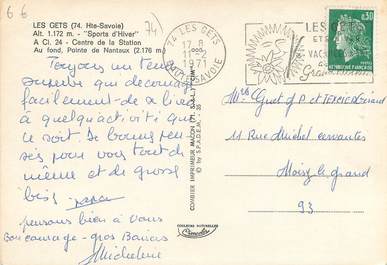 6 6
LES GETS (74. Hte-Savoie)
Alt. 1.172 m. - "Sports d'Hiver"
A Cl. 24 - Centre de la Station
Au fond, Pointe de Nantaux (2.176 m.)
74)
74 LES GETS
17 H
1971
HAUTE-SAVOIE
LES GETS
ETE
VACANCES
au
REPUBLIQUE FRANCAISE
0,30
POSTES
Toujours un temps
superbe qui décourage
facilement de se livrer
à quelqu'activité que
ce soit. De bonnes pen-
sées pour vous tout de
même et de grosses
bises
pensons bien à vous
Bon courage - gros Baisers
Micheline
COMBIER IMPRIMEUR MACON (71. S.-&-L.) "CIM"
© by S.P.A.D.E.M. - 35
COULEURS NATURELLES
Combier
et TERCIER Gérard
11 Rue Michel Cervantes
Noisy le grand
93